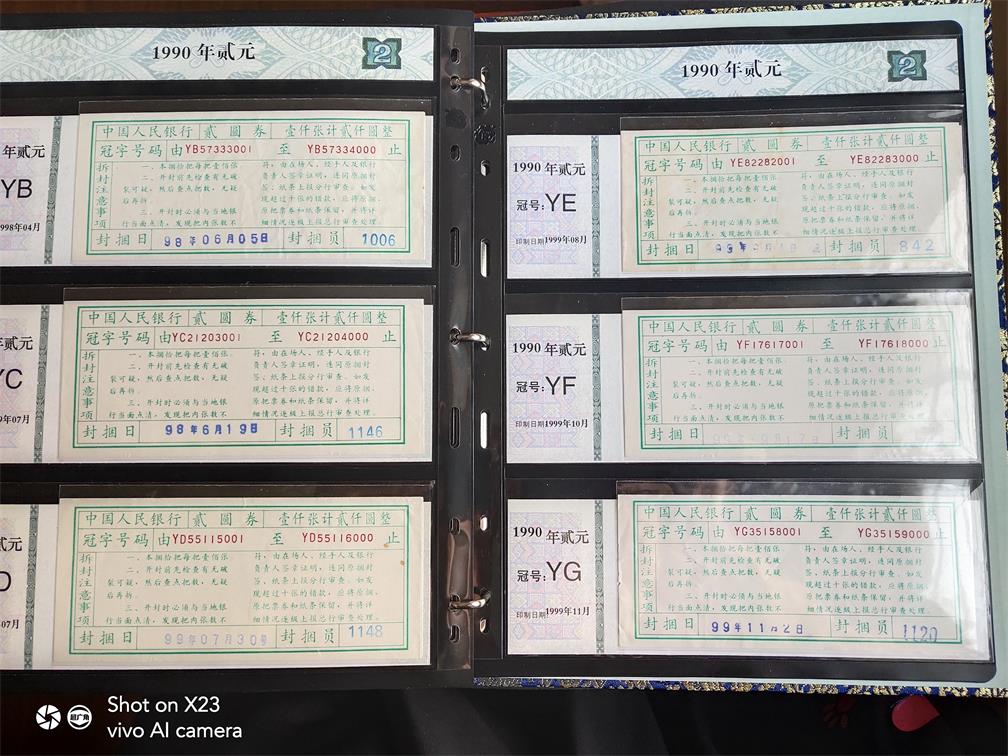 1990 年贰元
2
年贰元
YB
998年04月
中国人民银行 贰圆券 壹仟张计贰仟圆整
冠字号码 由YB57333001 至 YB57334000 止
拆封注意事项
一、本捆拾把每把壹佰张.
二、开封前先检查有无破
裂可疑，然后查点把数，无疑
后再拆.
三、开封时必须与当地银
行当面点清，发现把内张数不
符，由在场人、经手人及银行
负责人签章证明，连同原捆封
签、纸条上报分行审查。如发
现超过十张的错款，应将原捆
原把票券和纸条保留，并将详
细情况逐级上报总行审查处理.
封捆日 98年06月05日 封捆员 1006
年贰元
YC
年07月
中国人民银行 贰圆券 壹仟张计贰仟圆整
冠字号码 由YC21203001 至 YC21204000 止
拆封注意事项
一、本捆拾把每把壹佰张.
二、开封前先检查有无破
裂可疑，然后查点把数，无疑
后再拆.
三、开封时必须与当地银
行当面点清，发现把内张数不
符，由在场人、经手人及银行
负责人签章证明，连同原捆封
签、纸条上报分行审查。如发
现超过十张的错款，应将原捆
原把票券和纸条保留，并将详
细情况逐级上报总行审查处理.
封捆日 98年6月19日 封捆员 1146
贰元
D
07月
中国人民银行 贰圆券 壹仟张计贰仟圆整
冠字号码 由 YD55115001 至 YD55116000 止
拆封注意事项
一、本捆拾把每把壹佰张.
二、开封前先检查有无破
裂可疑，然后查点把数，无疑
后再拆.
三、开封时必须与当地银
行当面点清，发现把内张数不
符，由在场人、经手人及银行
负责人签章证明，连同原捆封
签、纸条上报分行审查。如发
现超过十张的错款，应将原捆
原把票券和纸条保留，并将详
细情况逐级上报总行审查处理.
封捆日 99年07月30号 封捆员 1148
1990 年贰元
2
1990 年贰元
冠号:YE
印制日期1999年08月
中国人民银行 贰圆券 壹仟张计贰仟圆整
冠字号码 由 YE82282001 至 YE82283000 止
拆封注意事项
一、本捆拾把每把壹佰张.
二、开封前先检查有无破
裂可疑，然后查点把数，无疑
后再拆.
三、开封时必须与当地银
行当面点清，发现把内张数不
符，由在场人、经手人及银行
负责人签章证明，连同原捆封
签、纸条上报分行审查。如发
现超过十张的错款，应将原捆
原把票券和纸条保留，并将详
细情况逐级上报总行审查处理.
封捆日 封捆员 842
1990 年贰元
冠号:YF
印制日期1999年10月
中国人民银行 贰圆券 壹仟张计贰仟圆整
冠字号码 由 YF17617001 至 YF17618000 止
拆封注意事项
一、本捆拾把每把壹佰张.
二、开封前先检查有无破
裂可疑，然后查点把数，无疑
后再拆.
三、开封时必须与当地银
行当面点清，发现把内张数不
符，由在场人、经手人及银行
负责人签章证明，连同原捆封
签、纸条上报分行审查。如发
现超过十张的错款，应将原捆
原把票券和纸条保留，并将详
细情况逐级上报总行审查处理.
封捆日 封捆员
1990 年贰元
冠号:YG
印制日期1999年11月
中国人民银行 贰圆券 壹仟张计贰仟圆整
冠字号码 由 YG35158001 至 YG35159000 止
拆封注意事项
一、本捆拾把每把壹佰张.
二、开封前先检查有无破
裂可疑，然后查点把数，无疑
后再拆.
三、开封时必须与当地银
行当面点清，发现把内张数不
符，由在场人、经手人及银行
负责人签章证明，连同原捆封
签、纸条上报分行审查。如发
现超过十张的错款，应将原捆
原把票券和纸条保留，并将详
细情况逐级上报总行审查处理.
封捆日 99年11月2日 封捆员 1120
超广角
Shot on X23
vivo AI camera